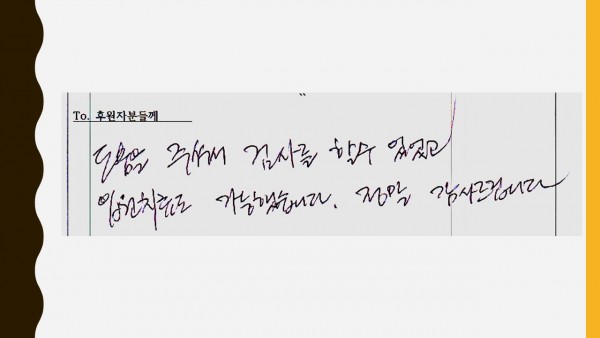 To. 후원자분들께
도움을 주셔서 검사를 할수 있었고
입원치료도 가능했습니다. 정말 감사드립니다